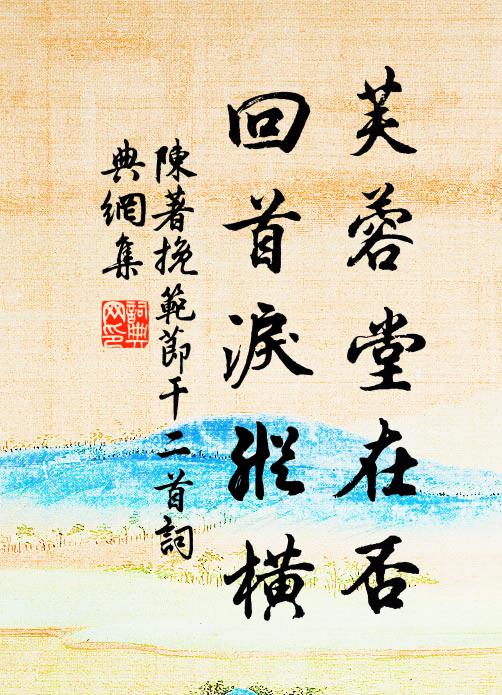 芙蓉堂在否
回首淚縱橫
陳著挽範節干二首詞
典網集
詞典
网印